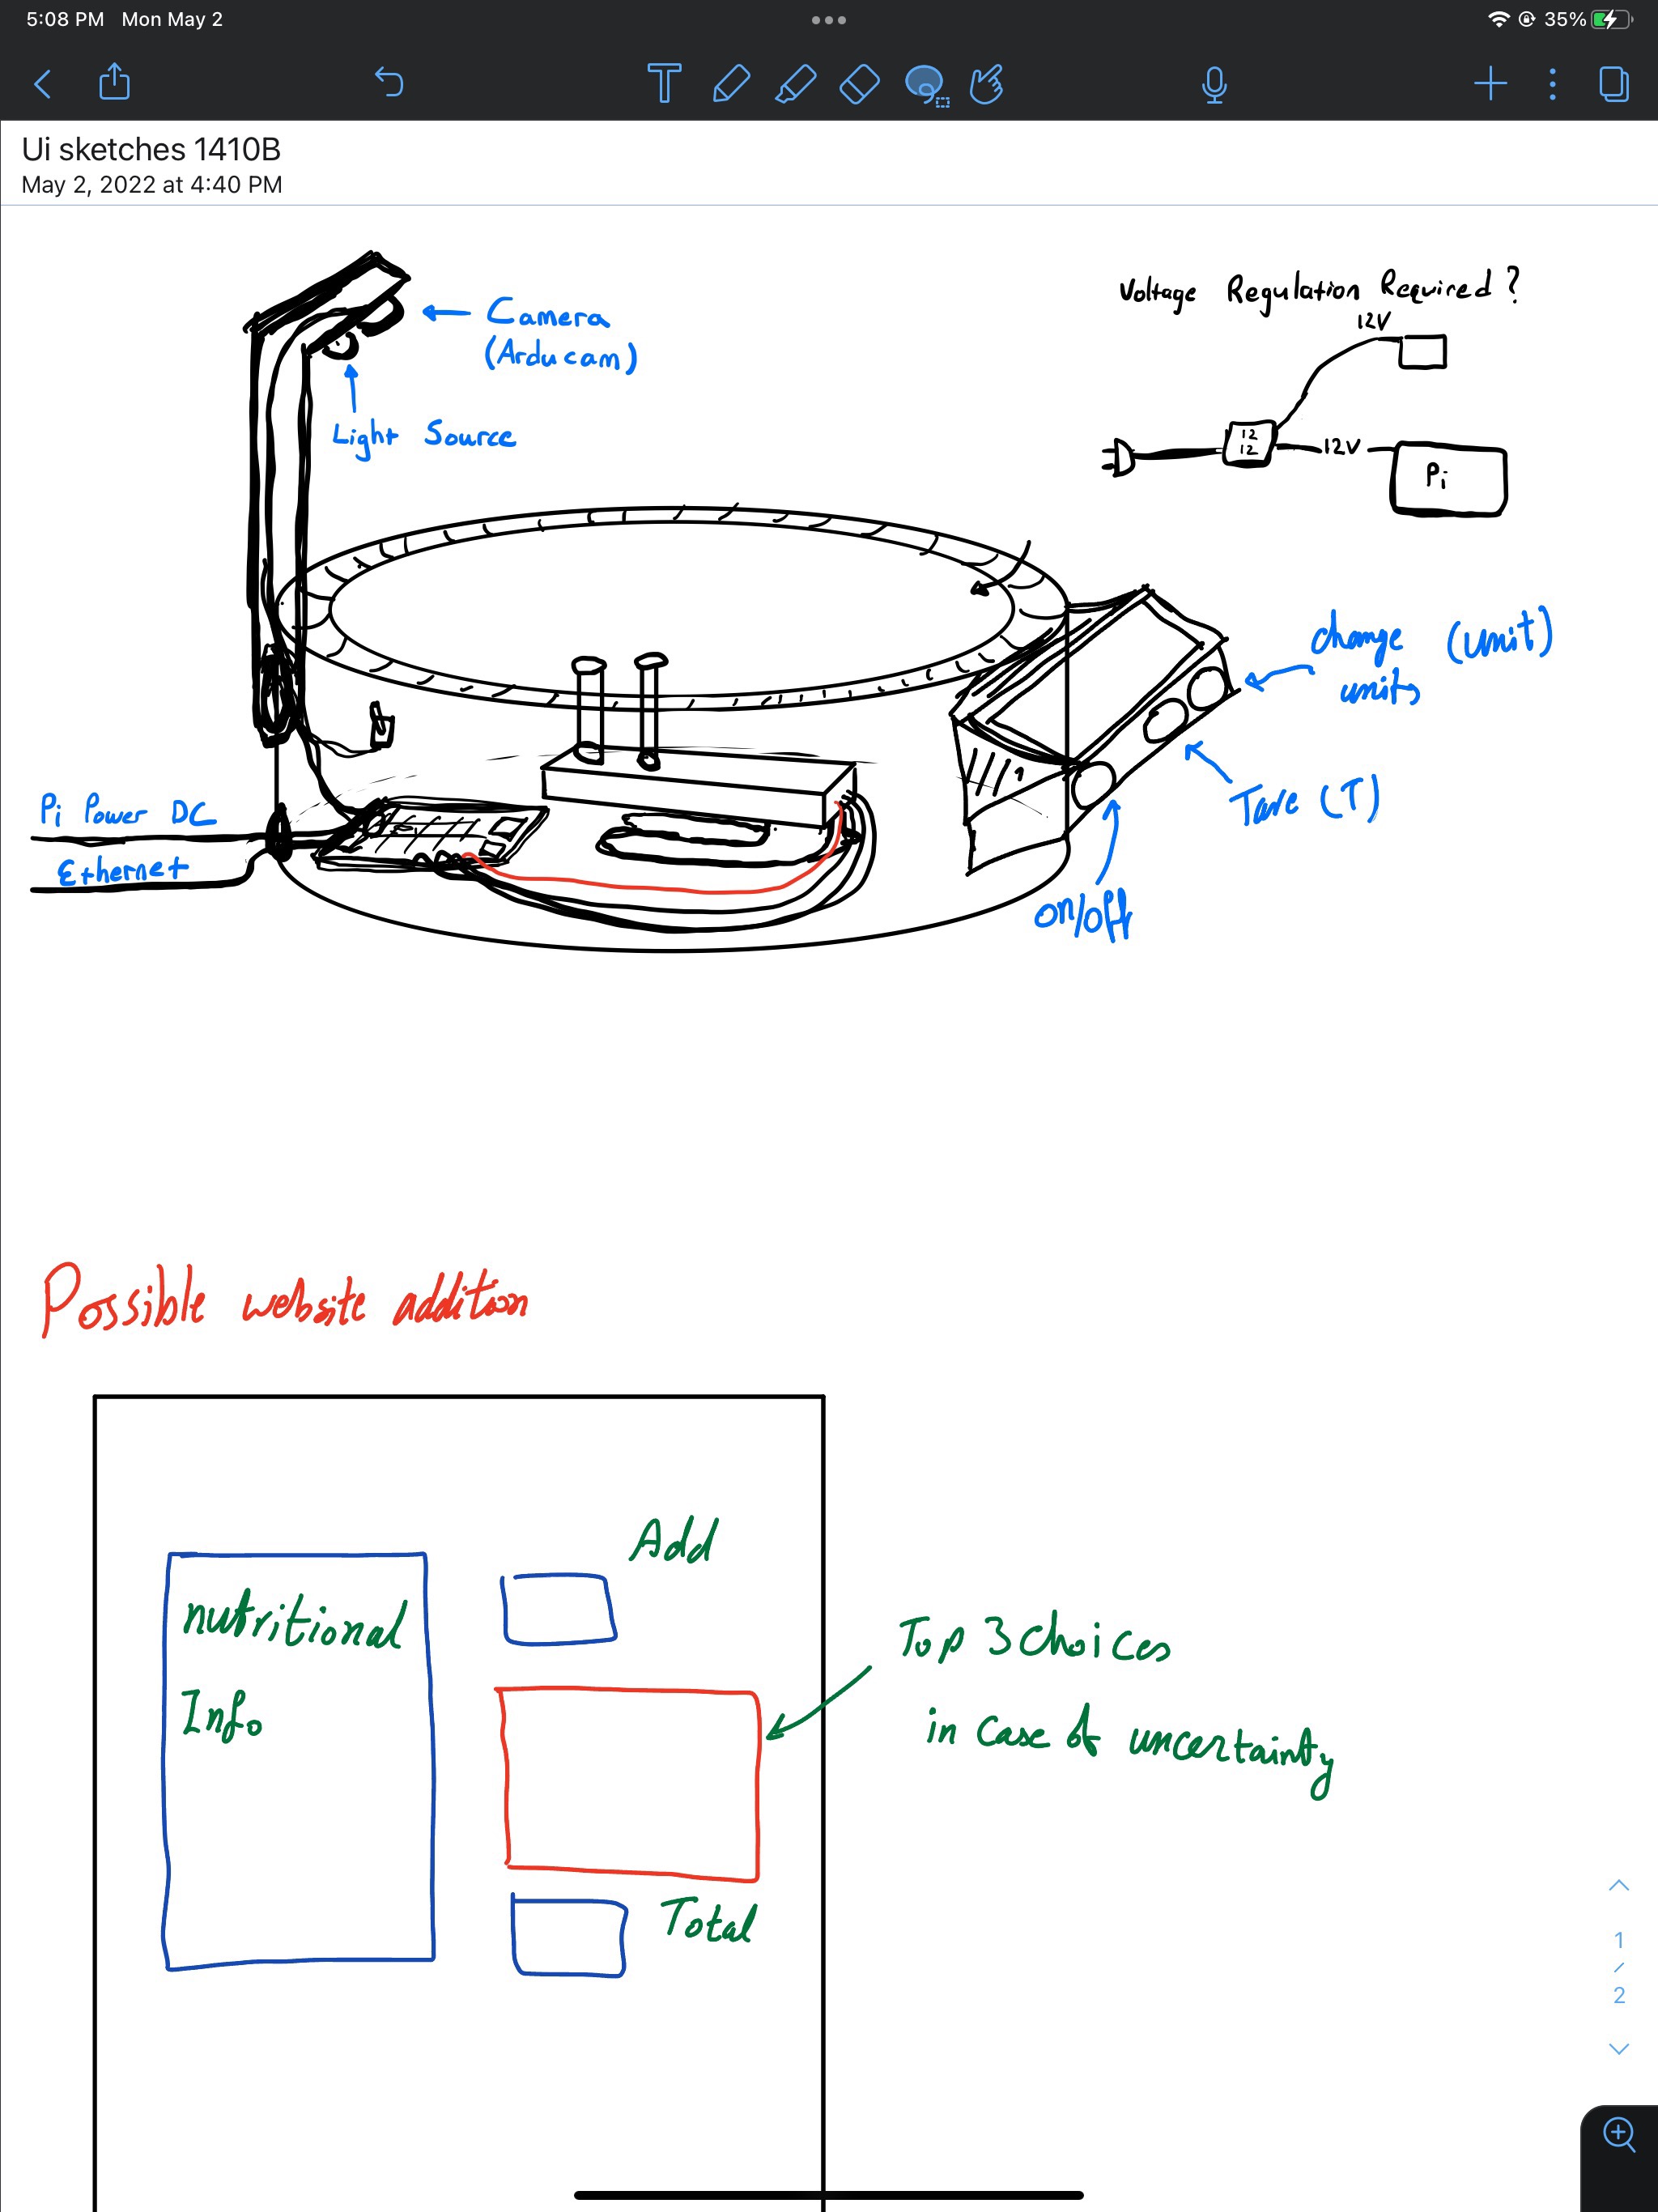 5:08 PM Mon May 2
35%
Ui sketches 1410B
May 2, 2022 at 4:40 PM
Voltage Regulation Required?
12V
Camera
(Arducam)
Light Source
12
12
12V
Pi
change (unit)
units
Tare (T)
on/off
Pi Power DC
Ethernet
Possible website addition
Add
nutritional
Info
Top 3 choices
in case of uncertainty
Total
1
/
2